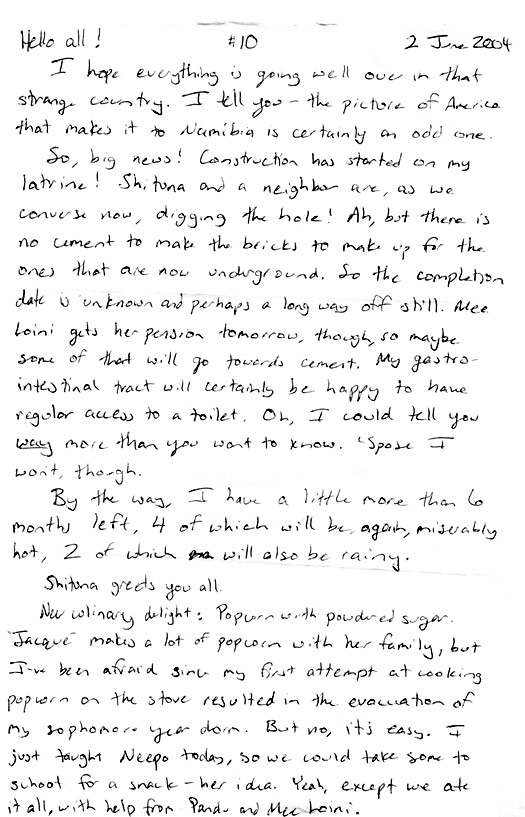 Hello all! #10 2 June 2004
I hope everything is going well over in that
strange country. I tell you – the picture of America
that makes it to Namibia is certainly an odd one.
So, big news! Construction has started on my
latrine! Shituna and a neighbor are, as we
converse now, digging the hole! Ah, but there is
no cement to make the bricks to make up for the
ones that are now underground. So the completion
date is unknown and perhaps a long way off still. Mee
Loini gets her pension tomorrow, though, so maybe
some of that will go towards cement. My gastro-
intestinal tract will certainly be happy to have
regular access to a toilet. Oh, I could tell you
way more than you want to know. 'Spose I
won't, though.
By the way, I have a little more than 6
months left, 4 of which will be, again, miserably
hot, 2 of which will also be rainy.
Shituna greets you all.
New culinary delight: Popcorn with powdered sugar.
Jacque makes a lot of popcorn with her family, but
I've been afraid since my first attempt at cooking
popcorn on the stove resulted in the evacuation of
my sophomore year dorm. But no, it's easy. I
just taught Neepo today, so we could take some to
school for a snack – her idea. Yeah, except we ate
it all, with help from Pandu and Mee Loini.